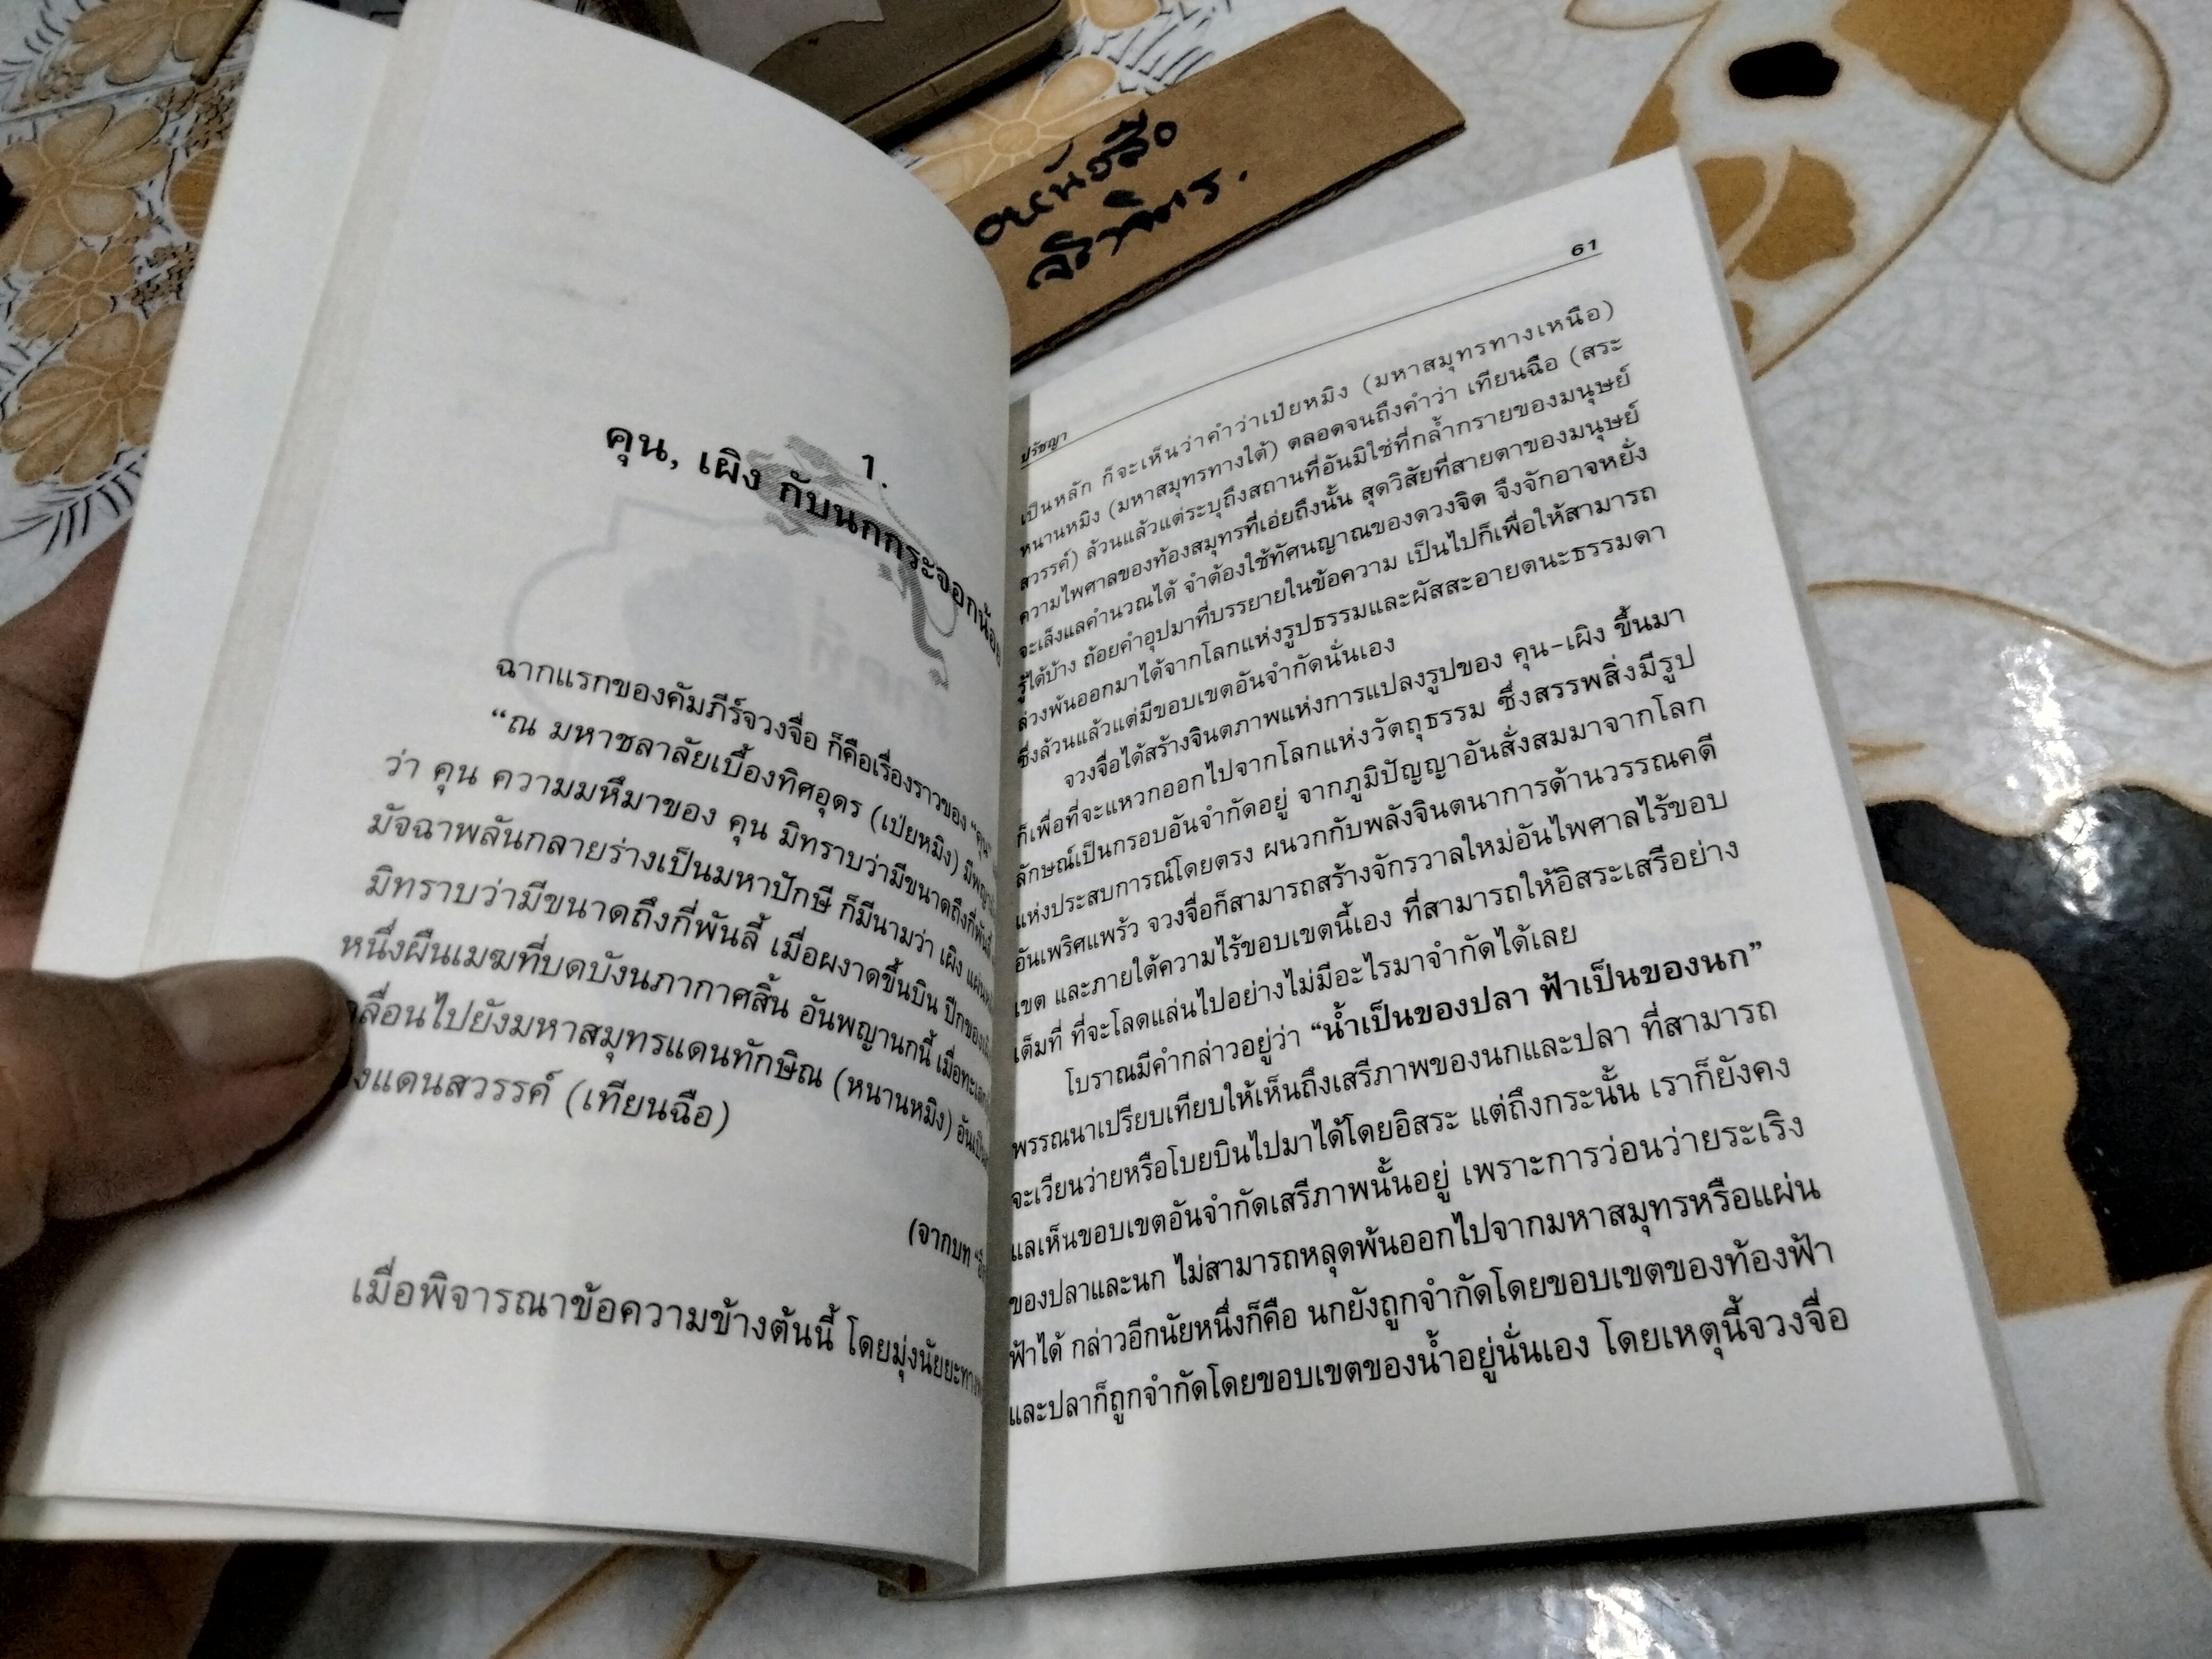 1.
คุน, เผิง กับนกกระจอกน้อย
ฉากแรกของคัมภีร์จวงจื่อ ก็คือเรื่องราวของ “คุน”
“ณ มหาชลาลัยเบื้องทิศอุดร (เป่ยหมิง)
ว่า คุน ความมหึมาของ คุน มิทราบว่ามีขนาดถึงกี่พันลี้
มัจฉาพลันกลายร่างเป็นมหาปักษี ก็มีนามว่า เผิง
มิทราบว่ามีขนาดถึงกี่พันลี้ เมื่อผงาดขึ้นบิน ปีกของ
หนึ่งผืนเมฆที่บดบังนภากาศสิ้น อันพญานกนี้
ลื่อนไปยังมหาสมุทรแดนทักษิณ (หนานหมิง)
งแดนสวรรค์ (เทียนฉือ)
(จากบท
เมื่อพิจารณาข้อความข้างต้นนี้ โดยมุ่งนัยยะทาง
หนังสือ
ปรัชญา
61
เป็นหลัก ก็จะเห็นว่าคำว่าเป่ยหมิง (มหาสมุทรทางเหนือ)
หนานหมิง (มหาสมุทรทางใต้) ตลอดจนถึงคำว่า เทียนฉือ (สระ
สวรรค์) ล้วนแล้วแต่ระบุถึงสถานที่อันมิใช่ที่กล้ำกรายของมนุษย์
ความไพศาลของท้องสมุทรที่เอ่ยถึงนั้น สุดวิสัยที่สายตาของมนุษย์
จะเล็งแลคำนวณได้ จำต้องใช้ทัศนญาณของดวงจิต จึงจักอาจหยั่ง
รู้ได้บ้าง ถ้อยคำอุปมาที่บรรยายในข้อความ เป็นไปก็เพื่อให้สามารถ
ล่วงพ้นออกมาได้จากโลกแห่งรูปธรรมและผัสสะอายตนะธรรมดา
ซึ่งล้วนแล้วแต่มีขอบเขตอันจำกัดนั่นเอง
จวงจื่อได้สร้างจินตภาพแห่งการแปลงรูปของ คุน–เผิง ขึ้นมา
ก็เพื่อที่จะแหวกออกไปจากโลกแห่งวัตถุธรรม ซึ่งสรรพสิ่งมีรูป
ลักษณ์เป็นกรอบอันจำกัดอยู่ จากภูมิปัญญาอันสั่งสมมาจากโลก
แห่งประสบการณ์โดยตรง ผนวกกับพลังจินตนาการด้านวรรณคดี
อันเพริศแพร้ว จวงจื่อก็สามารถสร้างจักรวาลใหม่อันไพศาลไร้ขอบ
เขต และภายใต้ความไร้ขอบเขตนี้เอง ที่สามารถให้อิสระเสรีอย่าง
เต็มที่ ที่จะโลดแล่นไปอย่างไม่มีอะไรมาจำกัดได้เลย
โบราณมีคำกล่าวอยู่ว่า “น้ำเป็นของปลา ฟ้าเป็นของนก”
พรรณนาเปรียบเทียบให้เห็นถึงเสรีภาพของนกและปลา ที่สามารถ
จะเวียนว่ายหรือโบยบินไปมาได้โดยอิสระ แต่ถึงกระนั้น เราก็ยังคง
แลเห็นขอบเขตอันจำกัดเสรีภาพนั้นอยู่ เพราะการว่อนว่ายระเริง
ของปลาและนก ไม่สามารถหลุดพ้นออกไปจากมหาสมุทรหรือแผ่น
ฟ้าได้ กล่าวอีกนัยหนึ่งก็คือ นกยังถูกจำกัดโดยขอบเขตของท้องฟ้า
และปลาก็ถูกจำกัดโดยขอบเขตของน้ำอยู่นั่นเอง โดยเหตุนี้จวงจื่อ